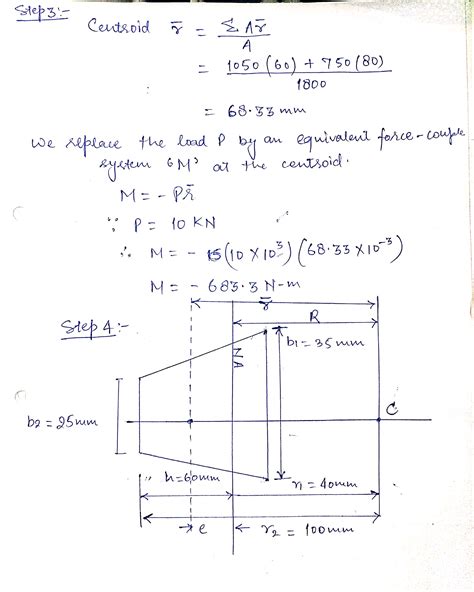 Step3:-
Centroid r̄ = ΣAr̄ / A
= 1050(60) + 750(80) / 1800
= 68.33 mm
We replace the load P by an equivalent force-couple
system 'M' at the centroid.
M = - Pr̄
∵ P = 10 KN
∴ M = - (10 × 10³) (68.33 × 10⁻³)
M = - 683.3 N-m
r̄
R
Step 4:-
b1 = 35mm
NA
C
b2 = 25mm
h = 60mm
r1 = 40mm
e
r2 = 100mm